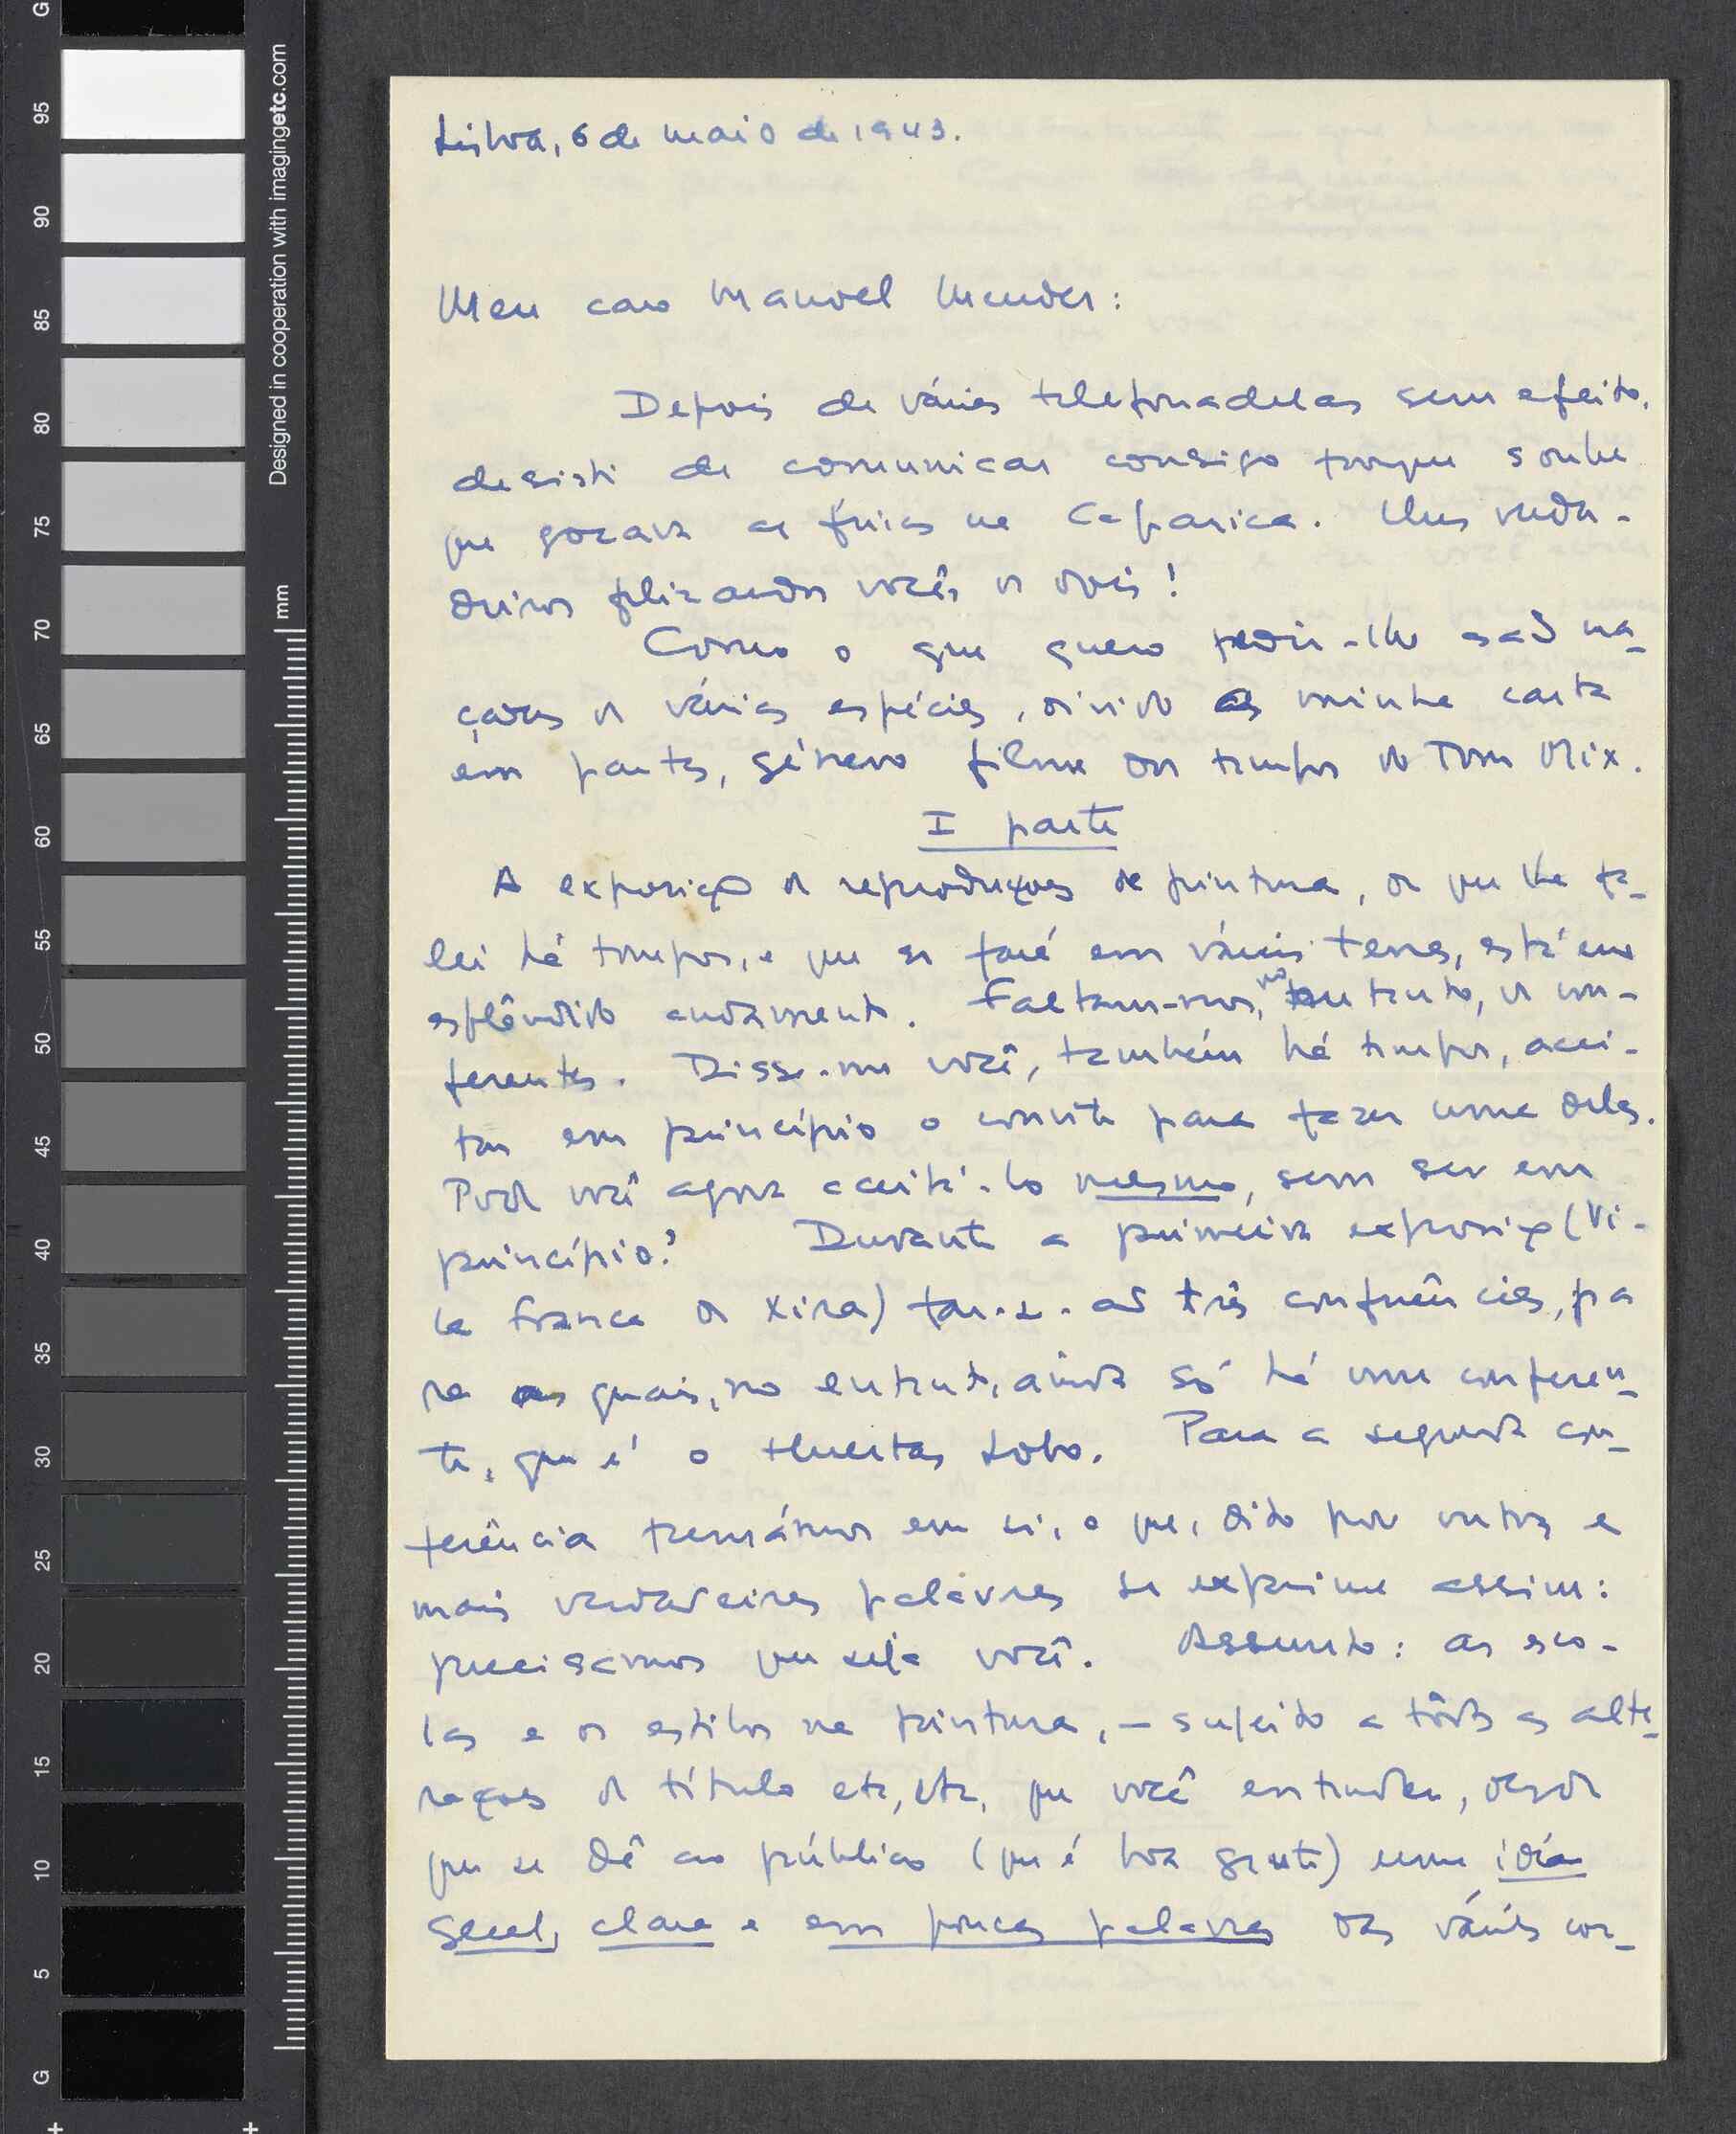 Designed in cooperation with imagingetc.com
mm
G
95
90
85
80
75
70
65
60
55
50
45
40
35
30
25
20
15
10
5
G
Lisboa, 6 de maio de 1943.
Meu caro Manuel Mendes:
Depois de várias telefonadelas sem efeito,
desisti de comunicar consigo porque soube
que gozava as férias na Caparica. Uns verda-
deiros felizardos vocês os dois!
Como o que quero pedir-lhe são ma-
çadas de várias espécies, divido a minha carta
em partes, género filme dos tempos do Tom Mix.
I parte
A exposição de reproduções de pintura, de que lhe fa-
lei há tempos, e que se fará em várias terras, está em
esplêndido andamento. Faltam-nos, no entanto, os con-
ferentes. Disse-me você, também há tempos, acei-
tar em princípio o convite para fazer uma delas.
Pode você agora aceitá-lo mesmo, sem ser em
princípio? Durante a primeira exposição (Vi-
la Franca de Xira) far-se-ão três conferências, pa
ra as quais, no entanto, ainda só há um conferen-
te, que é o Huertas Lobo. Para a segunda con-
ferência pensámos em si, o que, dito por outras e
mais verdadeiras palavras se exprime assim:
precisamos que seja você. Assunto: as esco-
las e os estilos na pintura, — sujeito a tôdas as alte-
rações de título etc, etc, que você entender, desde
que se dê ao público (que é boa gente) uma idéa
geral, clara e em poucas palavras das várias cor-